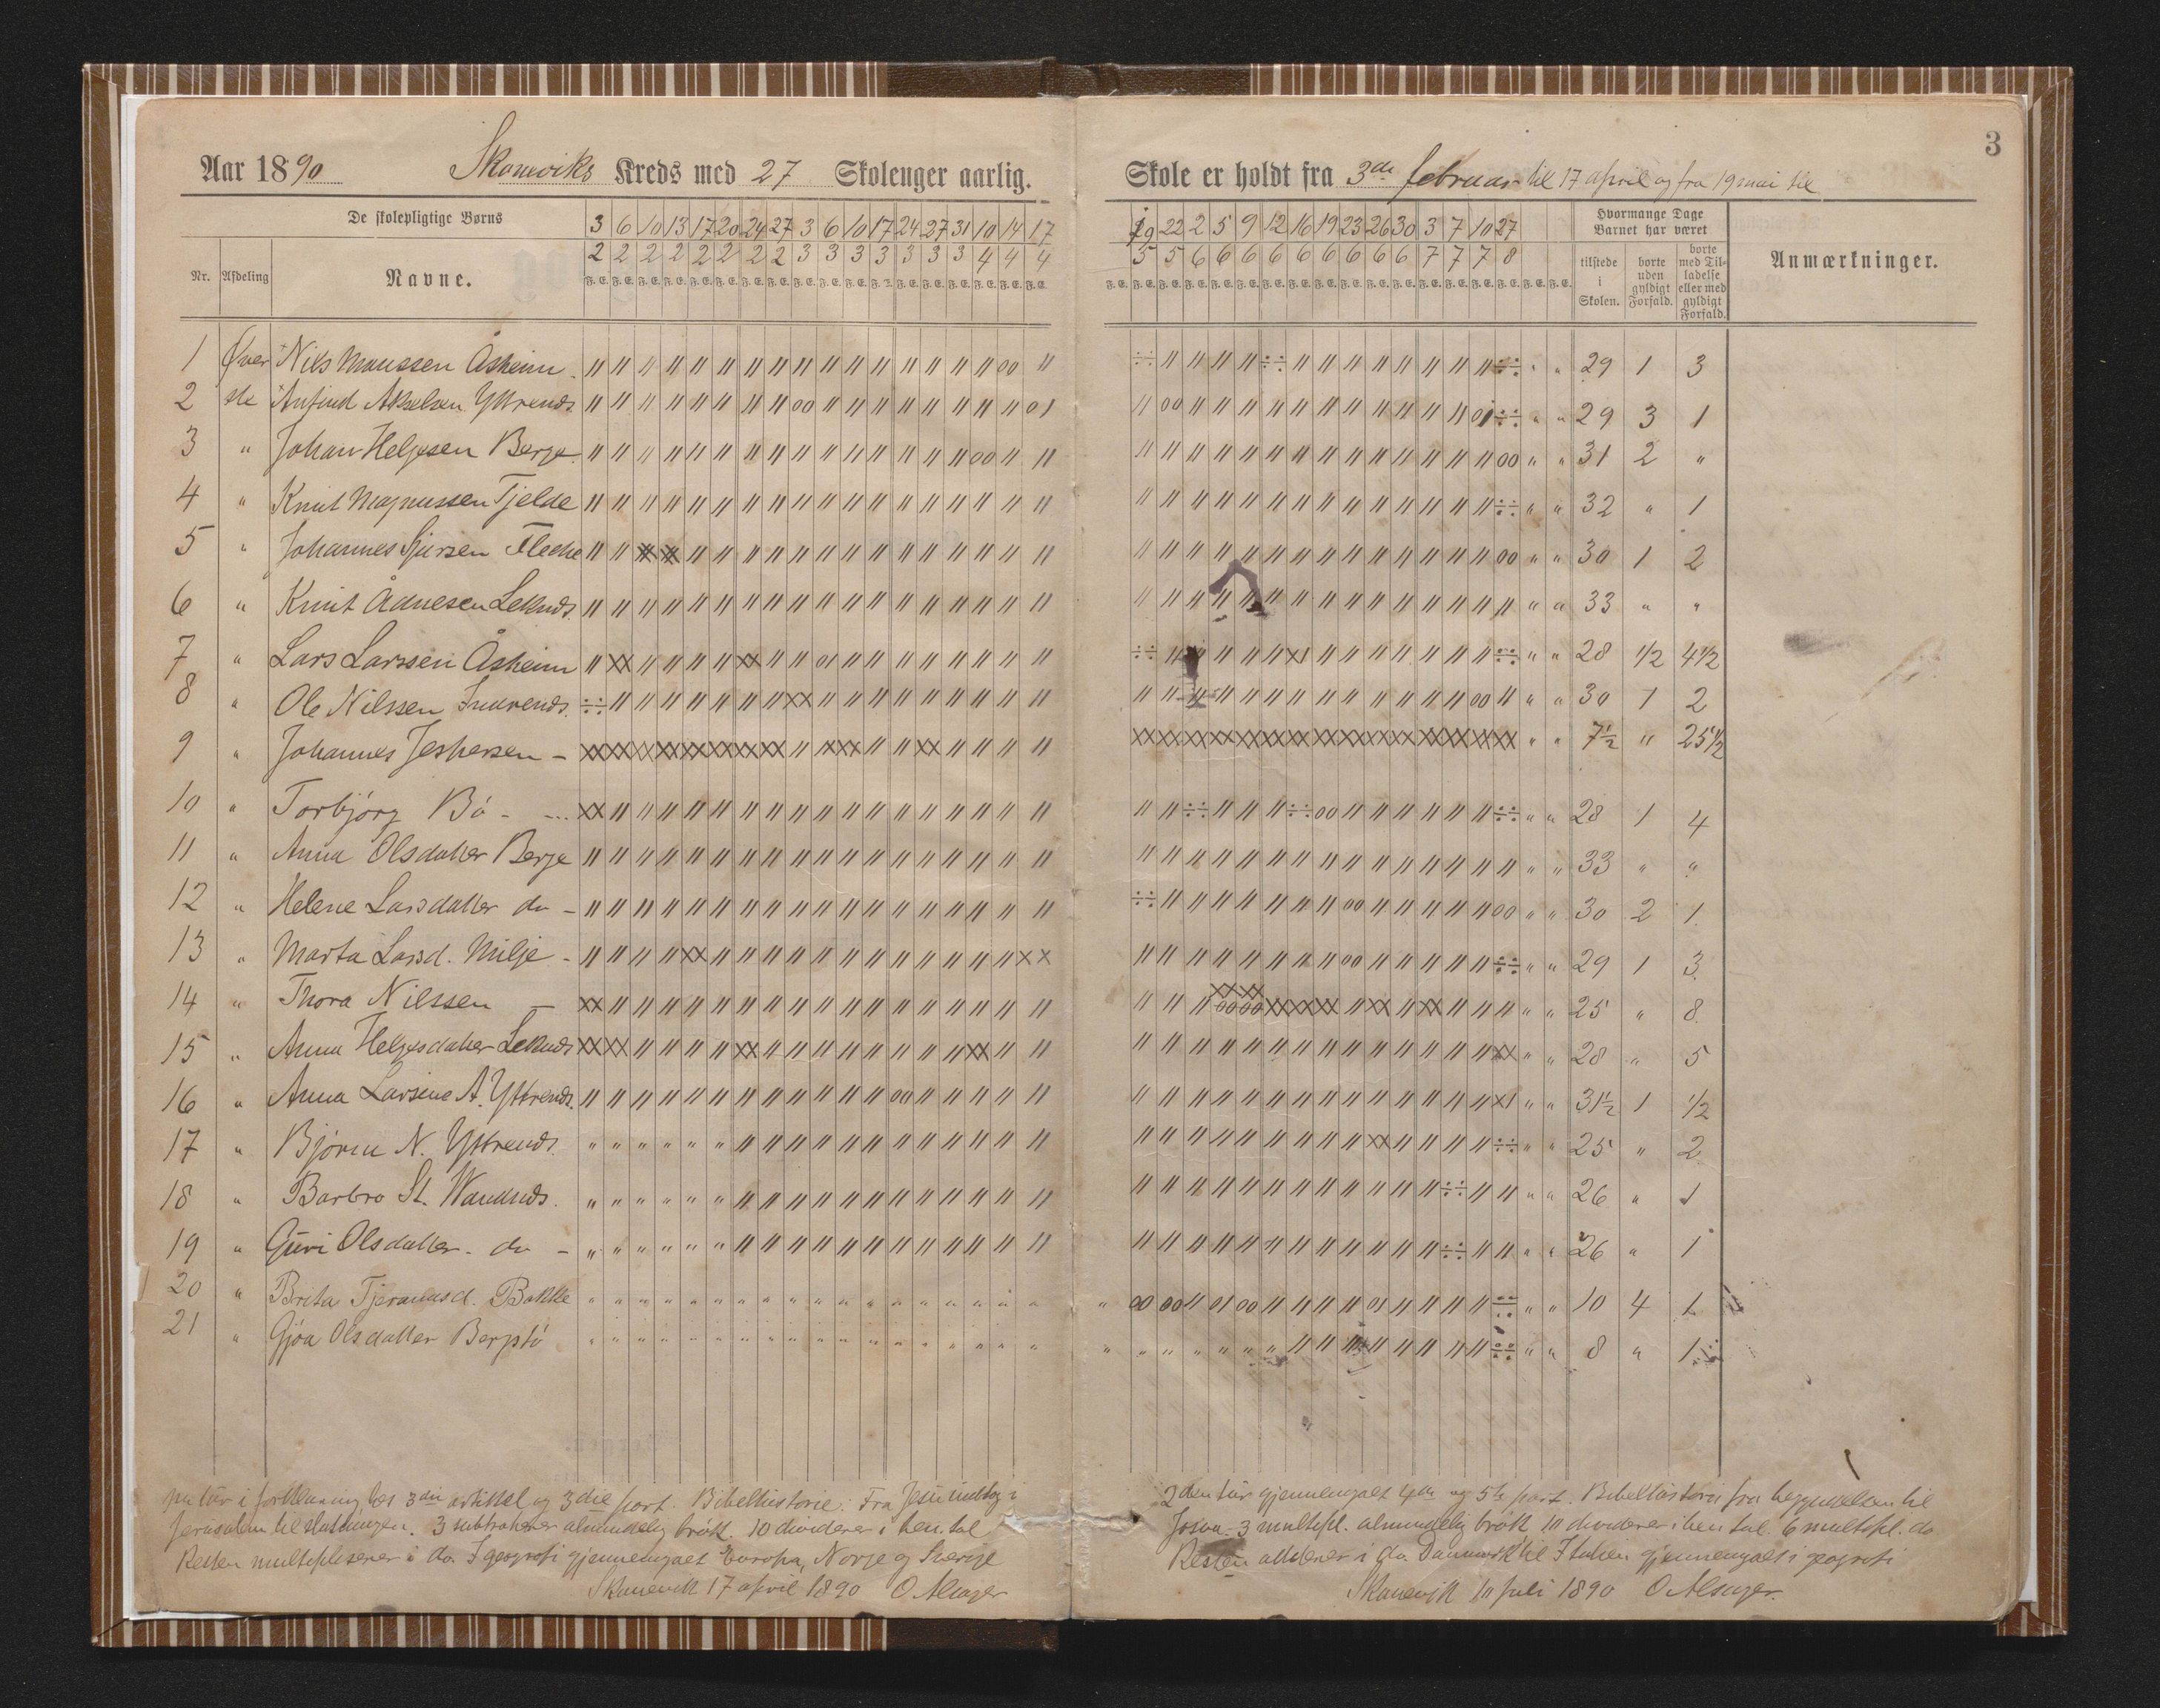 3
Aar 1890 Skoneviks Kreds med 27 Skoleuger aarlig.
Skole er holdt fra 3de februar til 17 april og fra 19 mai til
De skolepligtige Børns
3 6 10 13 17 20 24 27 3 6 10 17 24 27 31 10 14 17
2 2 2 2 2 2 2 2 3 3 3 3 3 3 3 4 4 4
Nr. Afdeling Navne.
F. E. F. E. F. E. F. E. F. E. F. E. F. E. F. E. F. E. F. E. F. E. F. E. F. E. F. E. F. E. F. E. F. E. F. E.
19 22 2 5 9 12 16 19 23 26 30 3 7 10 27
5 5 6 6 6 6 6 6 6 6 6 7 7 7 8
F. E. F. E. F. E. F. E. F. E. F. E. F. E. F. E. F. E. F. E. F. E. F. E. F. E. F. E. F. E. F. E. F. E. F. E.
Hvormange Dage
Barnet har været
tilstede
i
Skolen.
borte
uden
gyldigt
Forfald.
borte
med Til-
ladelse
eller med
gyldigt
Forfald.
Anmærkninger.
1 Øver Nils Monssen Åsheim 29 1 3
2 ste Anfind Akselsen Yttrends. 29 3 1
3 " Johan Helgesen Berge 31 2 "
4 " Knut Magnussen Tjelde 32 " 1
5 " Johannes Sjursen 30 1 2
6 " Knut Ådnesen Leknds. 33 " "
7 " Lars Larssen Åsheim 28 1/2 4 1/2
8 " Ole Nilssen 30 1 2
9 " Johannes Jespersen - 7 1/2 " 25 1/2
10 " Torbjörg Bö - 28 1 4
11 " Anna Olsdatter Berge 33 " "
12 " Helene Larsdatter do - 30 2 1
13 " Marta Larsd. Milje - 29 1 3
14 " Thora Nilssen - 25 " 8
15 " Anna Helgesdatter Leknds 28 " 5
16 " Anna Larsine A. Yttrends. 31 1/2 1 1/2
17 " Björn N. Yttrends. 25 " 2
18 " Barbro St. 26 " 1
19 " Guri Olsdatter do - 26 " 1
20 " Brita Bakke 10 4 1
21 " Gjöa Olsdatter 8 " 1
i forklaring læs 3die artikkel og 3die part. Bibelhistorie: Fra Jesu indtog i
Jerusalem til slutningen. 3 subtraherer almindelig brök. 10 dividerer i hen. tal
Resten multipliserer i do. I geografi gjennemgaaet Europa, Norge og Sverige
Skonevik 17 april 1890 O. Alsager
2den tur gjennemgaaet 4de og 5te part. Bibelhistorie fra begyndelsen til
Josva. 3 multipl. almindelig brök 10 dividerer i hen tal. 6 multipl. do
Resten adderer i do. Danmark til Italien gjennemgaaet i geografi
Skonevik 10 juli 1890 O. Alsager.